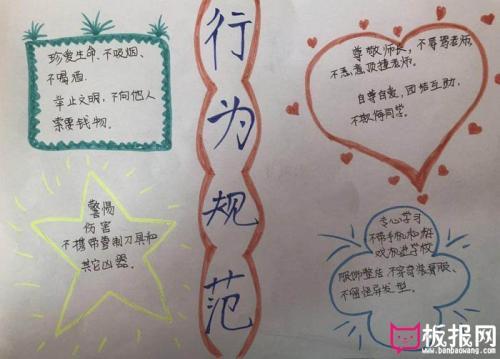 行为规范
珍爱生命、不吸烟、
不喝酒.
举止文明、不向他人
索要钱物.
尊敬师长,不辱骂老师,
不恶意顶撞老师.
自尊自爱,团结互助,
不欺侮同学.
警惕
伤害
不携带管制刀具和
其它凶器.
专心学习
不带手机和游
戏机进学校
服饰整洁 不穿奇装异服、
不留怪异发型.
板报网
www.banbaowang.com